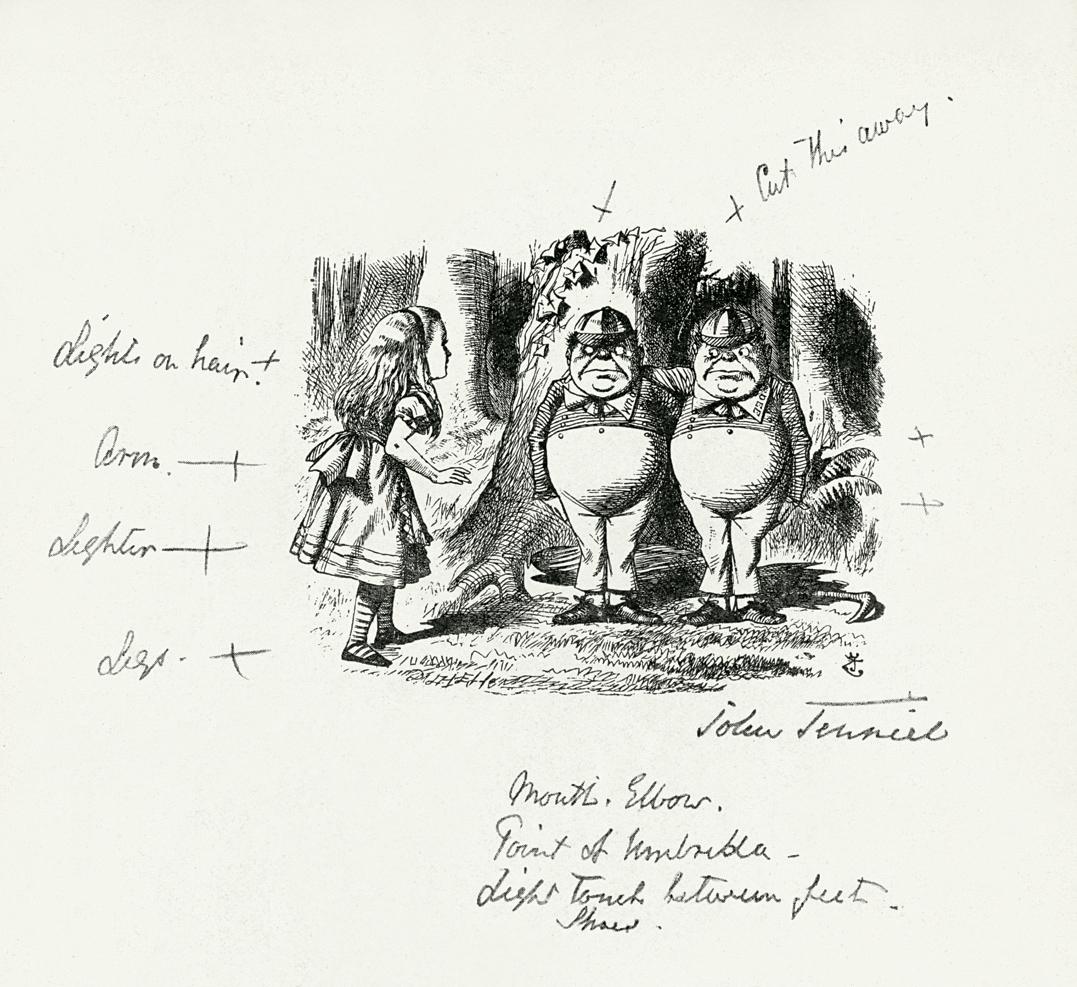 + Cut this away.
Lights on hair.+
Arm. +
Lighter +
Legs. +
John Tenniel
Mouth. Elbow.
Point of Umbrella -
Light touch between feet.
Shoes.